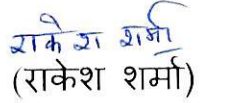 राकेश शर्मा
(राकेश शर्मा)